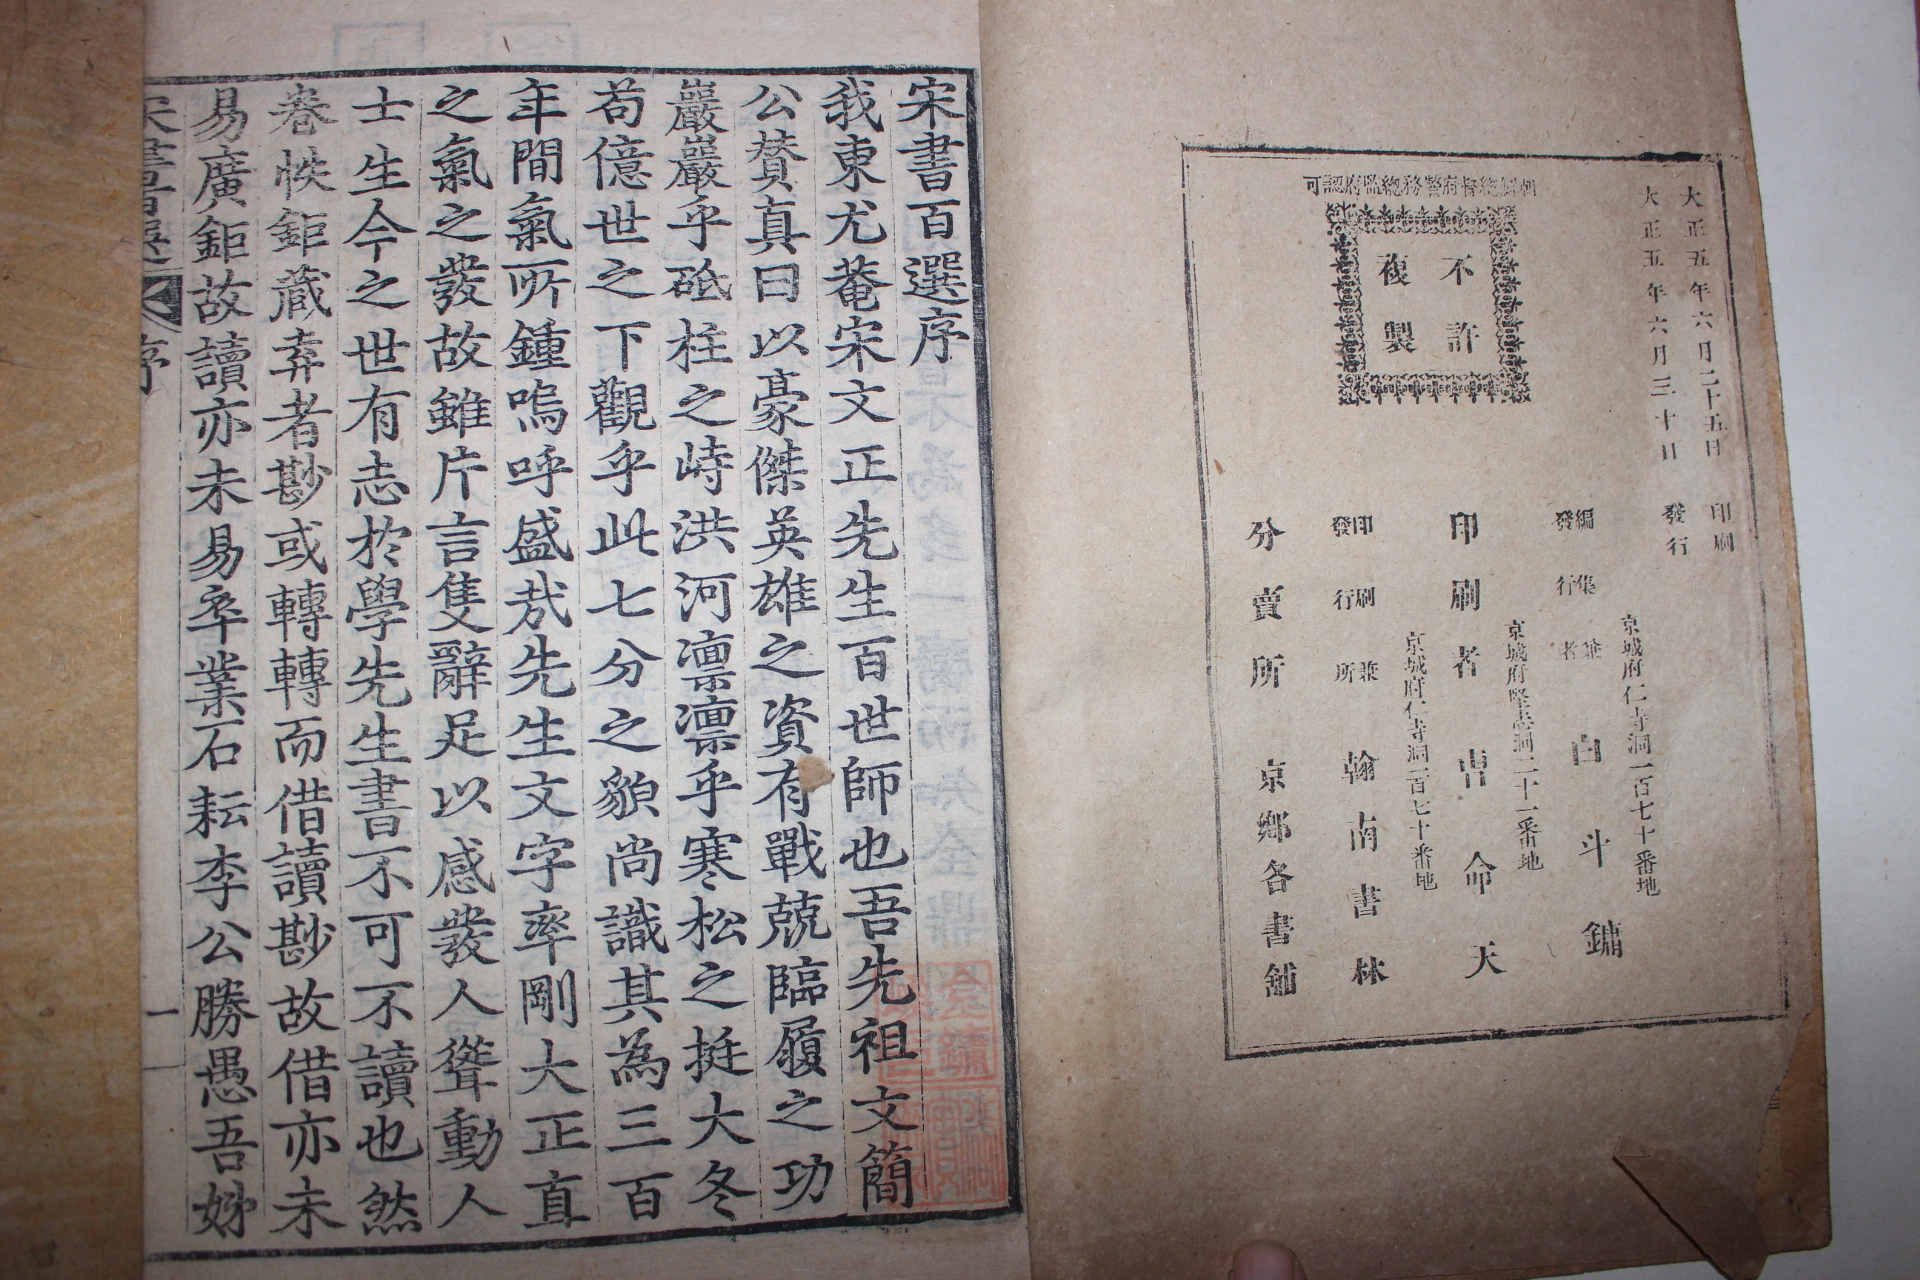 大正五年六月二十五日 印刷
大正五年六月三十日 發行
朝鮮總督府警務總監府認可
不許
複製
京城府仁寺洞一百七十番地
編集兼
發行者
白斗鏞
京城府堅志洞二十一番地
印刷者 曺命天
京城府仁寺洞一百七十番地
印刷兼
發行所
翰南書林
分賣所 京鄉各書舖
宋書百選序
我東尤菴宋文正先生百世師也吾先祖文簡
公贊真曰以豪傑英雄之資有戰兢臨履之功
巖巖乎砥柱之峙洪河凛凛乎寒松之挺大冬
苟億世之下觀乎此七分之貌尚識其為三百
年間氣所鍾嗚呼盛㢤先生文字率剛大正直
之氣之發故雖片言隻辭足以感發人聳動人
士生今之世有志於學先生書不可不讀也然
卷帙鉅藏弆者尠或轉轉而借讀尠故借亦未
易廣鉅故讀亦未易卒業石耘李公勝愚吾姊
宋書百選 序 一